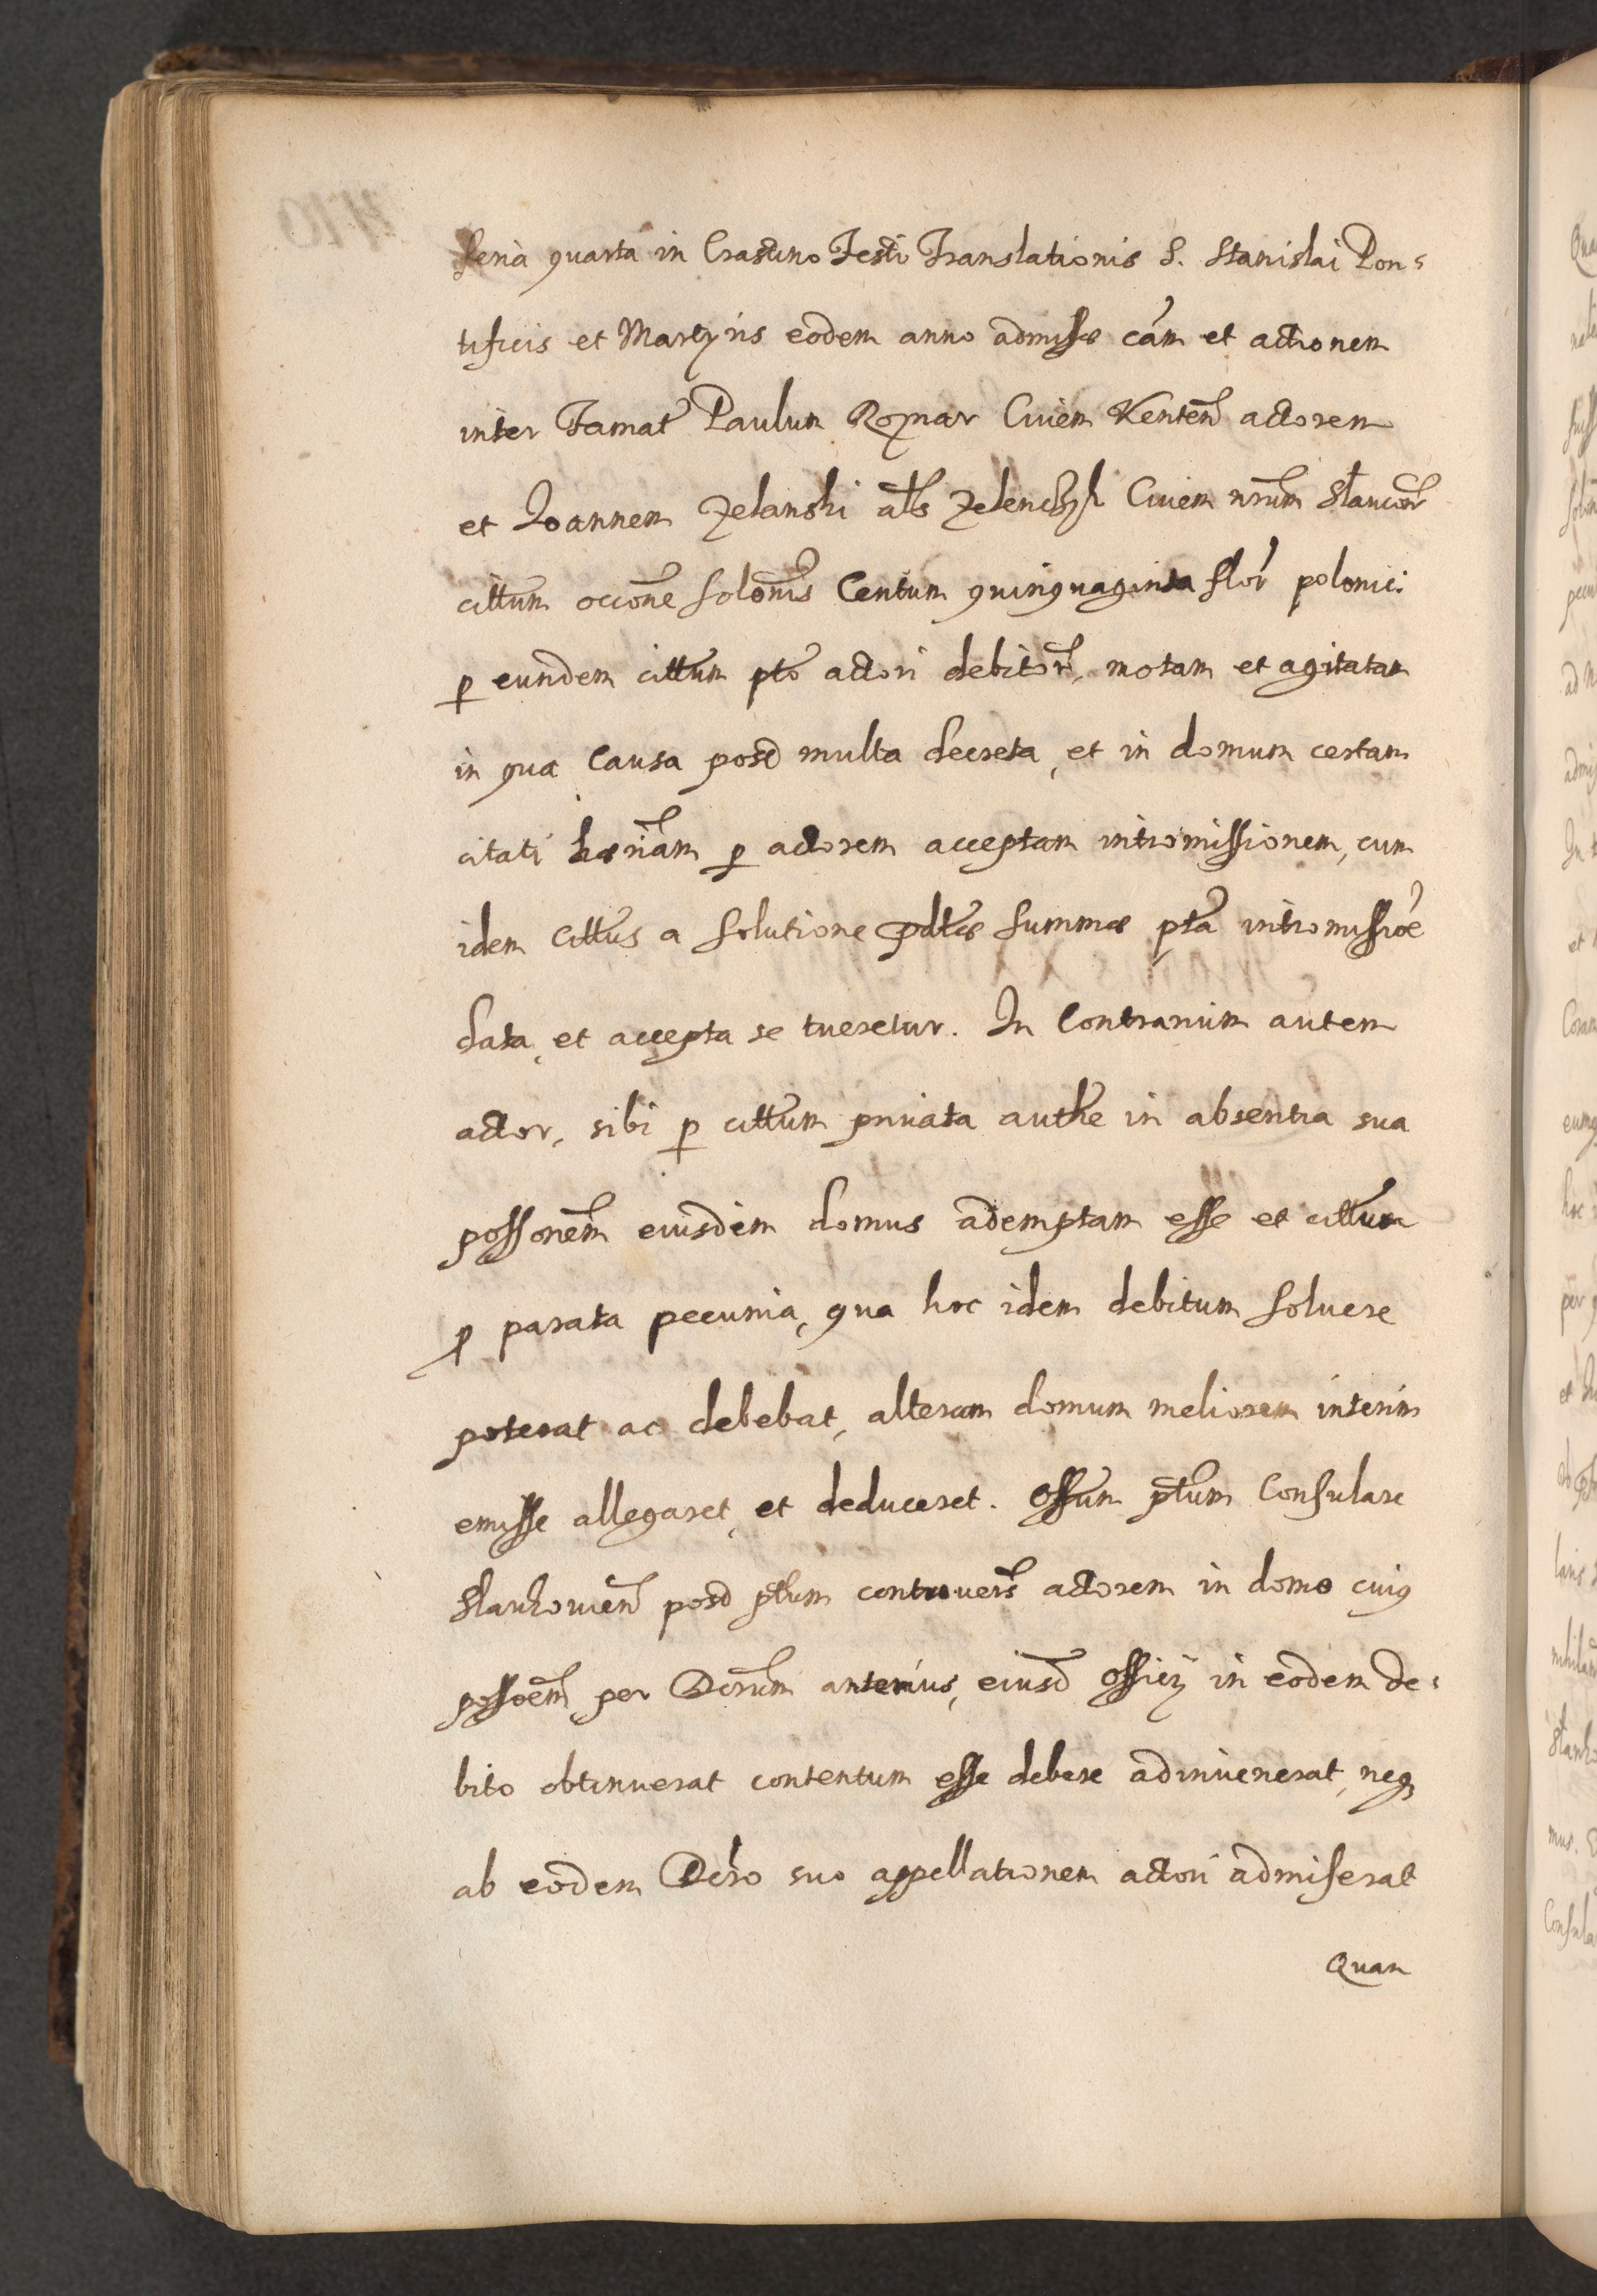 feria quarta in Crastino Festi Translationis S. Stanislai Pon:
tificis et Martyris eodem anno admissæ cãm et actionem
inter Famat̃ Paulum Roznar Ciuem Kenten̄ actorem
et Joannem Zelanski al̃s Zelenchzyk Ciuem nr̃um Slaucov̄
citt̃um occõne solõnis Centum quinquaginta flor̃ polonici
p eundem citt̃um pt̃o actori debitor̃, motam et agitatam
in qua Causa post multa decreta, et in domum certam
citati hæriãm p actorem acceptam intromissionem, cum
idem citt̃us a solutione pdt̃æ summæ pt̃a intromissiõe
data, et accepta se tueretur. In Contrarium autem
actor, sibi p citt̃um priuata auth̃e in absentia sua
possonẽm eiusdem domus ademptam esse et citt̃um
p parata pecunia, qua hoc idem debitum soluere
poterat ac debebat, alteram domum meliorem interim
emisse allegaret, et deduceret. Off̃um pt̃um Consulare
Slaukouien̄ post pt̃um controuers̃ actorem in domo cuiq
possoẽm per Decr̃um anterius, eiusd̃ Officij in eodem de:
bito obtinuerat contentum esse debere adinuenerat, neq
ab eodem Decr̃o suo appellationem actori admiserat
Quam